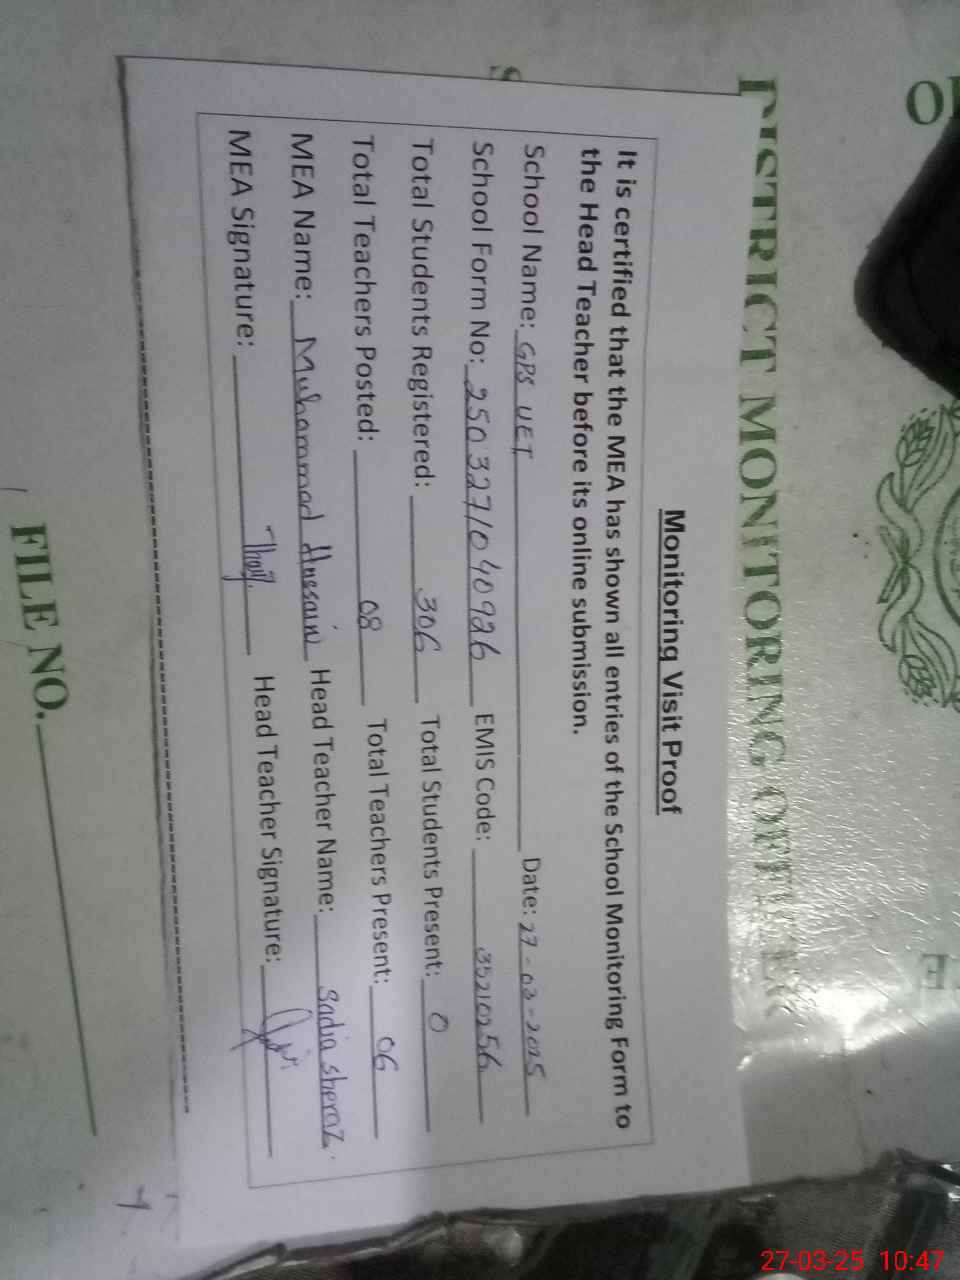 DISTRICT MONITORING OFFICER
Monitoring Visit Proof
It is certified that the MEA has shown all entries of the School Monitoring Form to
the Head Teacher before its online submission.
School Name: GPS UET Date: 27-03-2025
School Form No: 2503271040926 EMIS Code: 35210256
Total Students Registered: 306 Total Students Present: 0
Total Teachers Posted: 08 Total Teachers Present: 06
MEA Name: Muhammad Hussain Head Teacher Name: Sadia sheraz.
MEA Signature: Head Teacher Signature:
FILE NO.
27-03-25 10:47